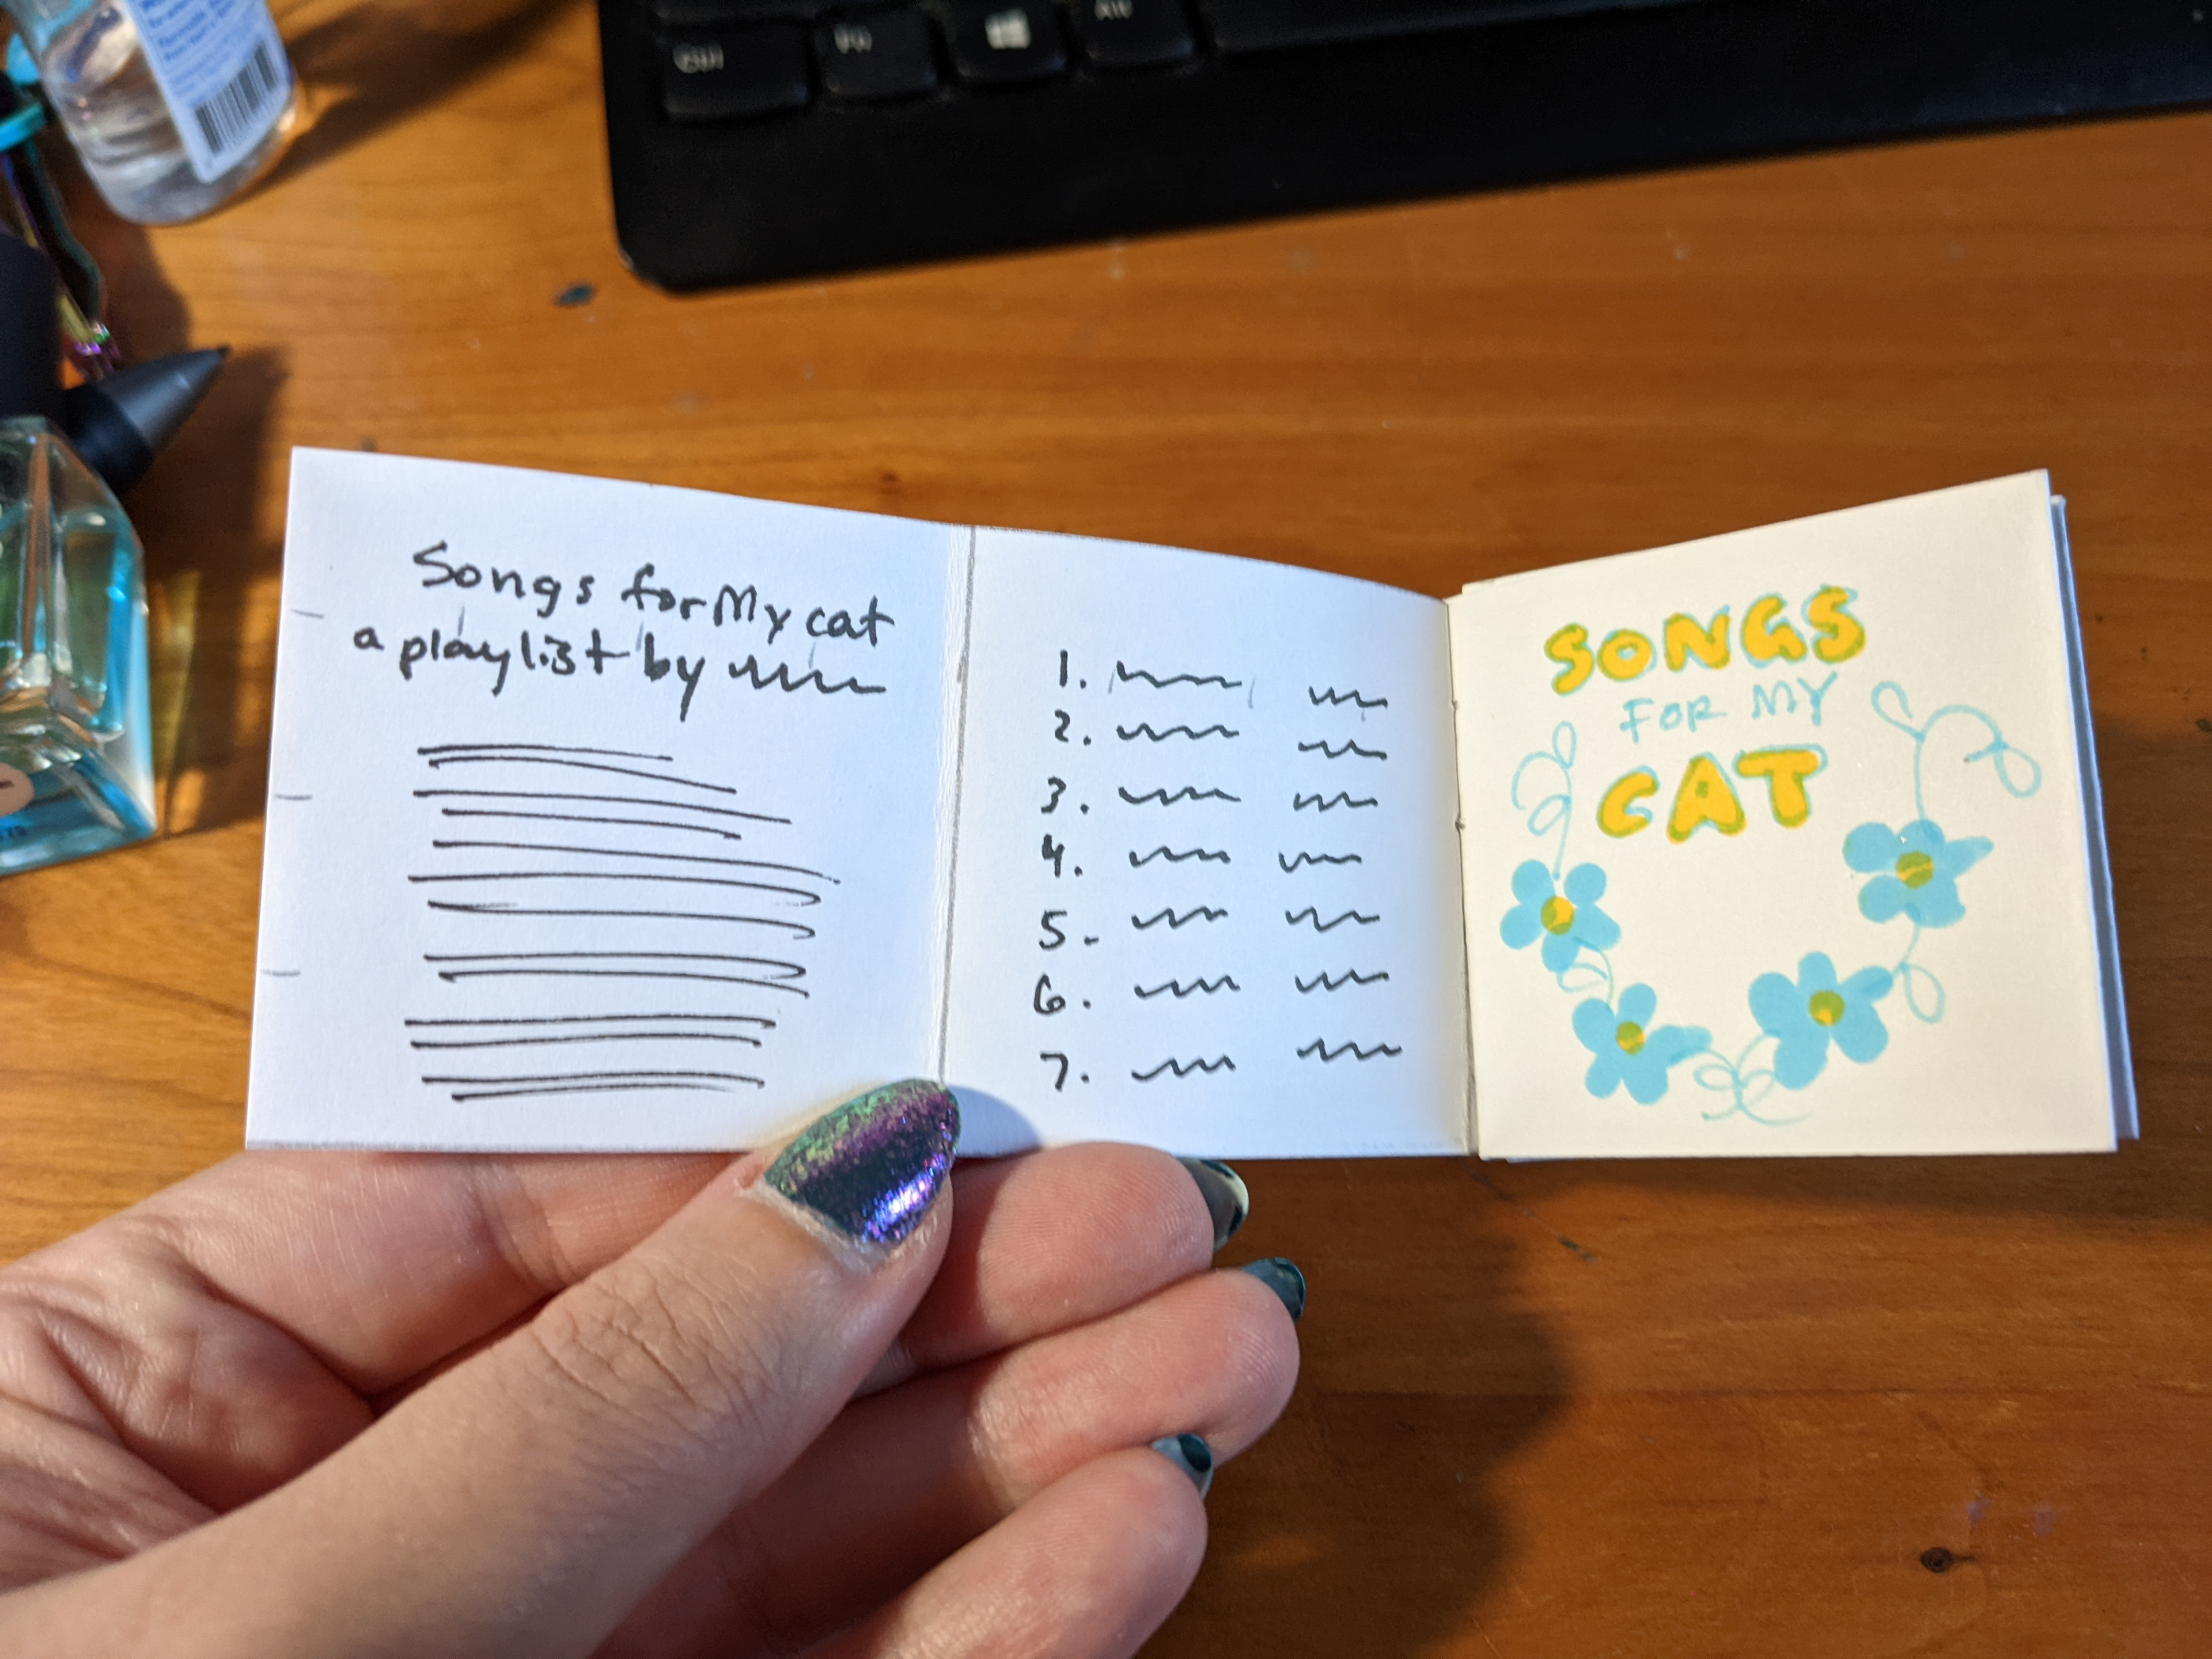 Ctrl
Fn
Alt
Songs for My cat
a playlist by
1.
2.
3.
4.
5.
6.
7.
SONGS
FOR MY
CAT